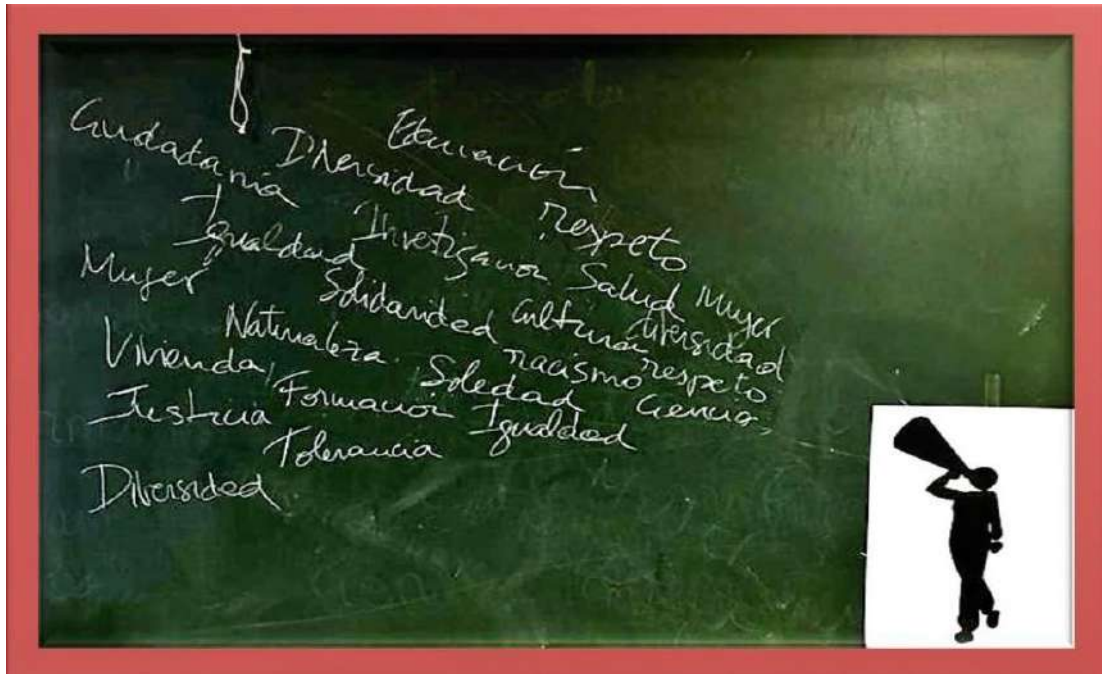 Educación
Ciudadanía Diversidad respeto
Igualdad Investigación Salud Mujer
Mujer Solidaridad Cultura diversidad
Naturaleza racismo respeto
Vivienda, Soledad Ciencia,
Justicia Formación Igualdad
Tolerancia
Diversidad